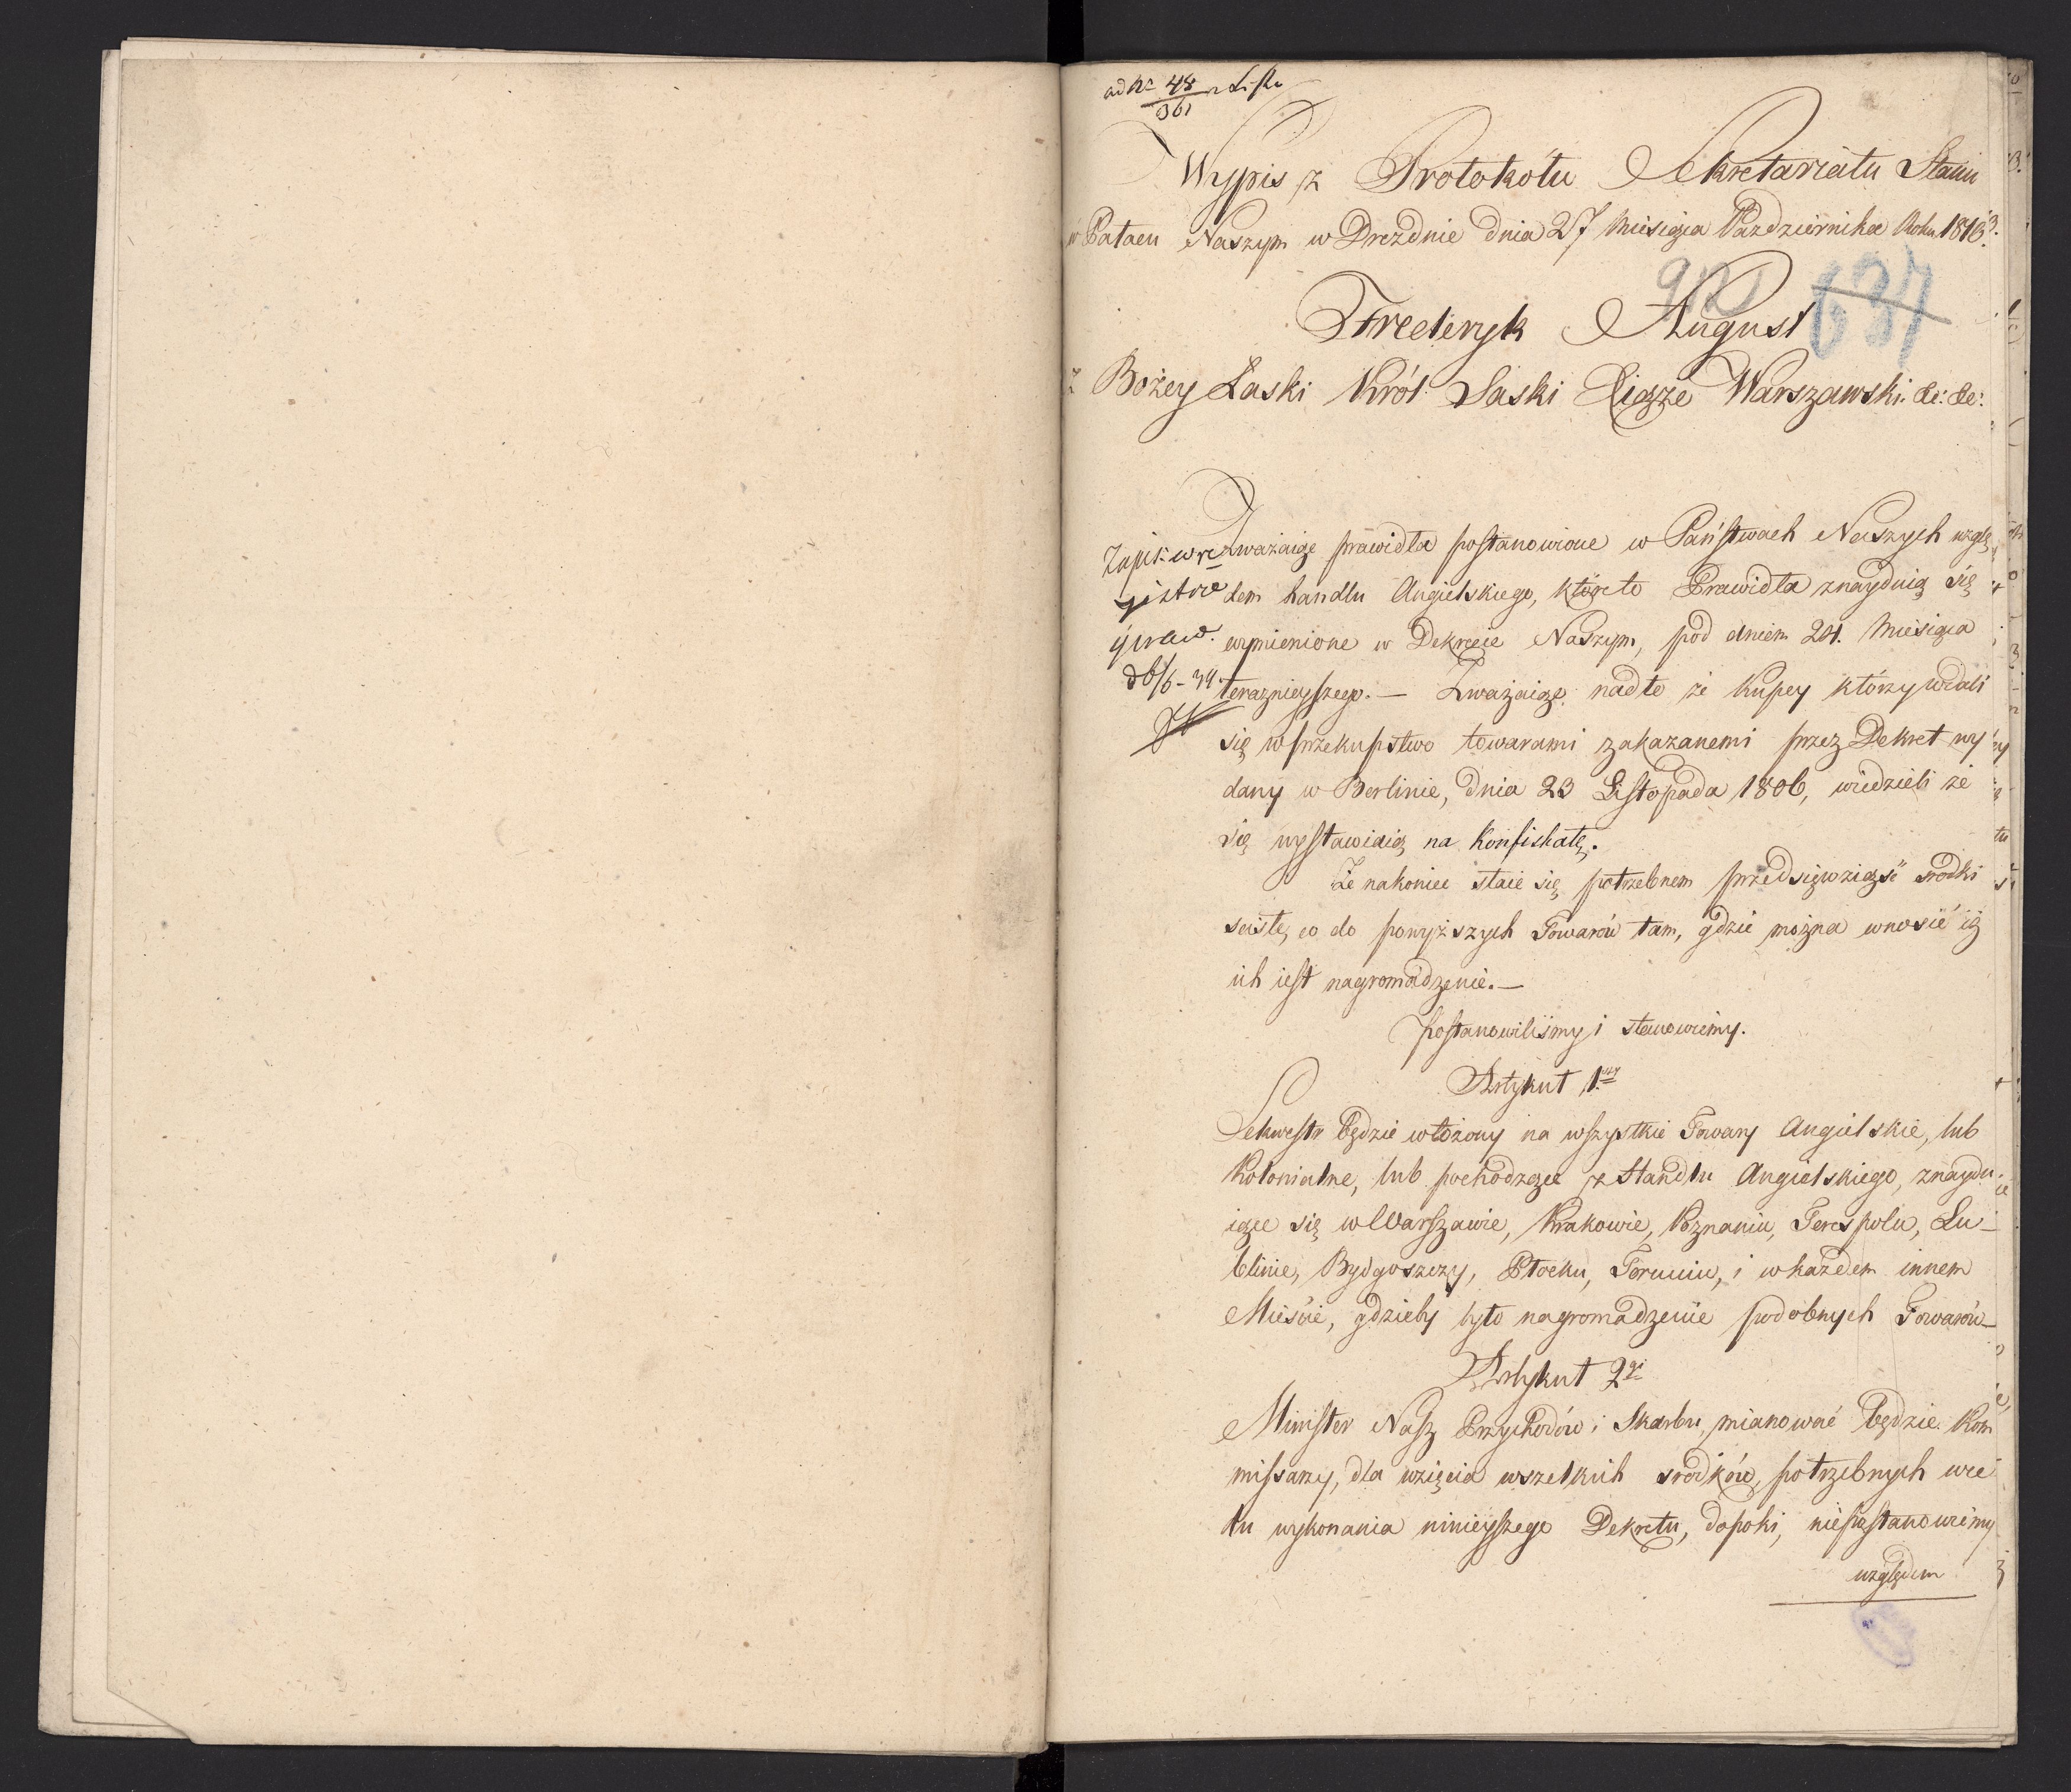 ad No 48
361
Wypis z Protokółu Sekretariatu Stanu
w Pałacu Naszym w Dreźdnie dnia 27 Miesiąca Października Roku 1810.
637
Frederyk August
z Bożey Łaski Król Saski Xiąże Warszawski. &c: &c:
Zważaiąc prawidła postanowione w Państwach Naszych wzglę
dem handlu Angielskiego, któreto Prawidła znayduią się
wymienione w Dekrecie Naszym, pod dniem 24. Miesiąca
teraznieyszego. — Zważaiąc nadto że Kupcy którzy wdali
się w przekupstwo towarami zakazanemi przez Dekret wy
dany w Berlinie, dnia 23 Listopada 1806, wiedzieli że
się wystawiaią na Konfiskatę.
Że nakoniec staie się potrzebnem przedsięwziąść srodki
scisłe, co do powyższych Towarów tam, gdzie można wnosić iż
ich iest nagromadzenie. —
Postanowiliśmy i stanowiemy.
Artykuł 1.szy
Sekwestr będzie włożony na wszystkie Towary Angielskie, lub
Kolonialne, lub pochodzące z Handlu Angielskiego, znaydu-
iące się w Warszawie, Krakowie, Poznaniu, Terespolu, Lu-
blinie, Bydgoszczy, Płocku, Toruniu, i w każdem innem
Mieście, gdzieby było nagromadzenie podobnych Towarów —
Artykuł 2gi
Minister Nasz Przychodów i Skarbu, mianować będzie Kom
missarzy, dla wzięcia wszelkich srodków, potrzebnych wce
lu wykonania ninieyszego Dekretu, dopoki, niepostanowiemy
względem